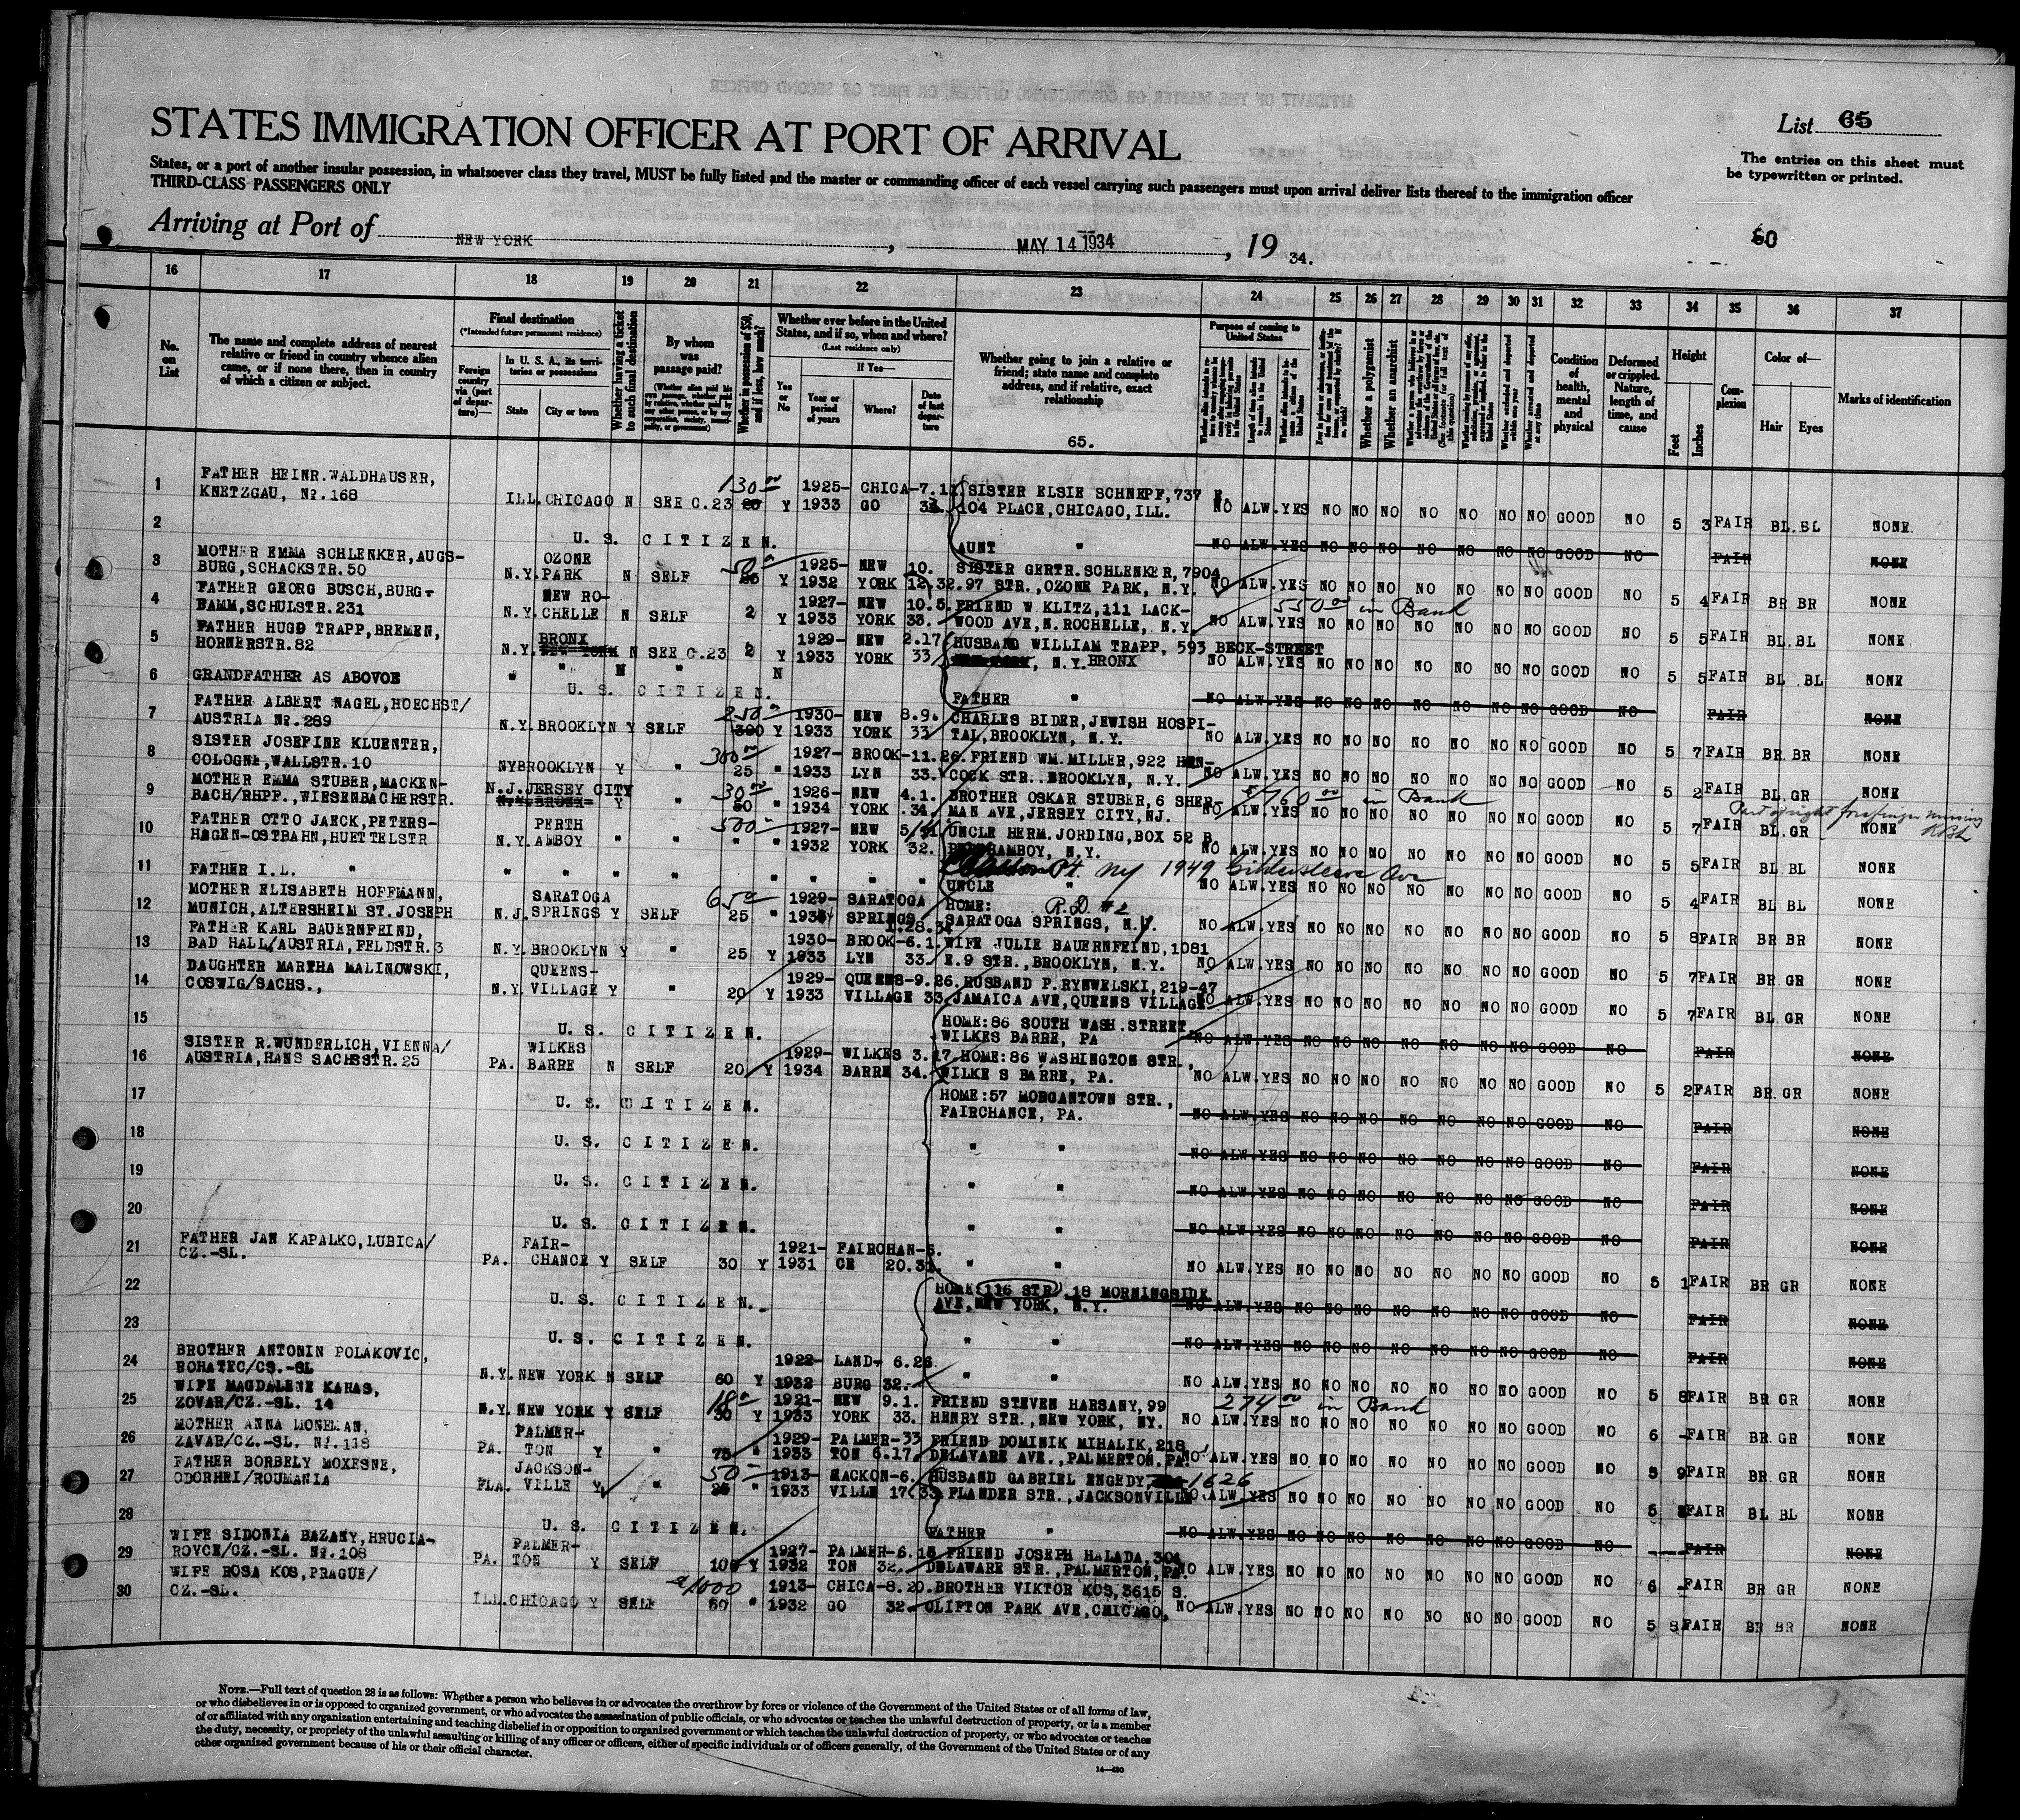 STATES IMMIGRATION OFFICER AT PORT OF ARRIVAL
List 65
States, or a port of another insular possession, in whatsoever class they travel, MUST be fully listed and the master or commanding officer of each vessel carrying such passengers must upon arrival deliver lists thereof to the immigration officer
THIRD-CLASS PASSENGERS ONLY
The entries on this sheet must
be typewritten or printed.
Arriving at Port of NEW YORK, MAY 14 1934, 19 34.
60
16 17 18 19 20 21 22 23 24 25 26 27 28 29 30 31 32 33 34 35 36 37
No. on List
The name and complete address of nearest relative or friend in country whence alien came, or if none there, then in country of which a citizen or subject.
Final destination
(*Intended future permanent residence)
Foreign country via (port of departure)—
In U. S. A., its territories or possessions
State City or town
Whether having a ticket to such final destination
By whom was passage paid?
Whether in possession of $50, and if less, how much?
Whether ever before in the United States, and if so, when and where?
(Last residence only)
If Yes—
Yes or No
Year or period of years
Where?
Date of last departure
Whether going to join a relative or friend; state name and complete address, and if relative, exact relationship
65.
Purpose of coming to United States
Whether a polygamist
Whether an anarchist
Condition of health, mental and physical
Deformed or crippled. Nature, length of time, and cause
Height
Feet Inches
Complexion
Color of—
Hair Eyes
Marks of identification
1 FATHER HEINR. WALDHAUSER, KNETZGAU, No. 168 ILL. CHICAGO N SEE C.23 130 00 Y 1925-1933 CHICAGO 7.11. SISTER ELSIE SCHNEPF, 737 104 PLACE, CHICAGO, ILL. NO ALW. YES NO NO NO NO NO NO NO GOOD NO 5 3 FAIR BL. BL NONE
2 U. S. CITIZEN. AUNT " NO ALW. YES NO NO NO NO NO NO NO GOOD NO FAIR NONE
3 MOTHER EMMA SCHLENKER, AUGSBURG, SCHACKSTR. 50 N.Y. OZONE PARK N SELF 50 Y 1925-1932 NEW YORK 10. 12.32. SISTER GERTR. SCHLENKER, 7904 97 STR., OZONE PARK, N.Y. NO ALW. YES NO NO NO NO NO NO NO GOOD NO 5 4 FAIR BR BR NONE
4 FATHER GEORG BUSCH, BURG- SCHULSTR. 231 N.Y. NEW ROCHELLE N SELF 2 Y 1927-1933 NEW YORK 10.5. 33. FRIEND W. KLITZ, 111 LACKWOOD AVE, N. ROCHELLE, N.Y. 550 00 in Bank NO ALW. YES NO NO NO NO NO NO NO GOOD NO 5 5 FAIR BL. BL NONE
5 FATHER HUGO TRAPP, BREMEN, HORNERSTR. 82 N.Y. BRONX NEW YORK N SEE C.23 2 Y 1929-1933 NEW YORK 2.17 33 HUSBAND WILLIAM TRAPP, 593 BECK-STREET N.Y. BRONX NO ALW. YES NO NO NO NO NO NO NO GOOD NO 5 5 FAIR BL BL NONE
6 GRANDFATHER AS ABOVOE " " N " N U. S. CITIZEN. FATHER " NO ALW. YES NO NO NO NO NO NO NO GOOD NO FAIR NONE
7 FATHER ALBERT NAGEL, HOECHST/AUSTRIA No. 289 N.Y. BROOKLYN Y SELF 250 Y 1930-1933 NEW YORK 8.9. 33 CHARLES BIDER, JEWISH HOSPITAL, BROOKLYN, N.Y. NO ALW. YES NO NO NO NO NO NO NO GOOD NO 5 7 FAIR BR. BR NONE
8 SISTER JOSEFINE KLUENTER, COLOGNE, WALLSTR. 10 NY BROOKLYN Y " 300 00 25 " 1927-1933 BROOKLYN 11.26. 33. FRIEND WM. MILLER, 922 HANCOCK STR. BROOKLYN, N.Y. NO ALW. YES NO NO NO NO NO NO NO GOOD NO 5 2 FAIR BL. GR NONE
9 MOTHER EMMA STUBER, MACKENBACH/RHPF., WIESENBACHERSTR. N.J. JERSEY CITY N.Y. BRONX Y " 30 00 50 " 1926-1934 NEW YORK 4.1. .34. BROTHER OSKAR STUBER, 6 SHERMAN AVE, JERSEY CITY, NJ. $760 00 in Bank NO ALW. YES NO NO NO NO NO NO NO GOOD NO 5 7 FAIR BL. GR NONE Part of right forefinger missing
10 FATHER OTTO JAECK, PETERSHAGEN-OSTBAHN, HUETTELSTR N.Y. PERTH AMBOY " " 500 " " 1927-1932 NEW YORK 32. UNCLE HERM. JORDING, BOX 52 B. AMBOY, N.Y. NO ALW. YES NO NO NO NO NO NO NO GOOD NO 5 5 FAIR BL BL NONE
11 FATHER I.L. " " " " " " " " " UNCLE " Pt. NY 1949 Gildersleeve Ave NO ALW. YES NO NO NO NO NO NO NO GOOD NO 5 4 FAIR BL BL NONE
12 MOTHER ELISABETH HOFFMANN, MUNICH, ALTERSHEIM ST. JOSEPH N.J. SARATOGA SPRINGS Y SELF 65 25 " 1929- SARATOGA SPRINGS 1.28.34 HOME: R.D. #2 SARATOGA SPRINGS, N.Y. NO ALW. YES NO NO NO NO NO NO NO GOOD NO 5 8 FAIR BR BR NONE
13 FATHER KARL BAUERNFEIND, BAD HALL/AUSTRIA, FELDSTR. 3 N.Y. BROOKLYN Y " 25 Y 1930-1933 BROOKLYN 6.1. 33. WIFE JULIE BAUERNFEIND, 1081 E.9 STR., BROOKLYN, N.Y. NO ALW. YES NO NO NO NO NO NO NO GOOD NO 5 7 FAIR BR GR NONE
14 DAUGHTER MARTHA MALINOWSKI, COSWIG/SACHS., N.Y. QUEENS-VILLAGE Y " 20 Y 1929-1933 QUEENS VILLAGE 9.26. 33 HUSBAND P. RYNWELSKI, 219-47 JAMAICA AVE, QUEENS VILLAGE NO ALW. YES NO NO NO NO NO NO NO GOOD NO 5 7 FAIR BL GR NONE
15 U. S. CITIZEN. HOME: 86 SOUTH WASH. STREET, WILKES BARRE, PA NO ALW. YES NO NO NO NO NO NO NO GOOD NO FAIR NONE
16 SISTER R. WUNDERLICH, VIENNA/AUSTRIA, HANS SACHSSTR. 25 PA. WILKES BARRE N SELF 20 Y 1929-1934 WILKES BARRE 3.17. 34. HOME: 86 WASHINGTON STR., WILKE S BARRE, PA. NO ALW. YES NO NO NO NO NO NO NO GOOD NO 5 2 FAIR BR. GR NONE
17 U. S. CITIZEN. HOME: 57 MORGANTOWN STR., FAIRCHANCE, PA. NO ALW. YES NO NO NO NO NO NO NO GOOD NO FAIR NONE
18 U. S. CITIZEN. " " NO ALW. YES NO NO NO NO NO NO NO GOOD NO FAIR NONE
19 U. S. CITIZEN. " " NO ALW. YES NO NO NO NO NO NO NO GOOD NO FAIR NONE
20 U. S. CITIZEN. " " NO ALW. YES NO NO NO NO NO NO NO GOOD NO FAIR NONE
21 FATHER JAN KAPALKO, LUBICA/CZ.-SL. PA. FAIRCHANCE Y SELF 30 Y 1921-1931 FAIRCHANCE 20.31. " " NO ALW. YES NO NO NO NO NO NO NO GOOD NO 5 1 FAIR BR GR NONE
22 U. S. CITIZEN. HOME: 116 STR, 18 MORNINGSIDE AVE, NEW YORK, N.Y. NO ALW. YES NO NO NO NO NO NO NO GOOD NO FAIR NONE
23 U. S. CITIZEN. " " NO ALW. YES NO NO NO NO NO NO NO GOOD NO FAIR NONE
24 BROTHER ANTONIN POLAKOVIC, BOHATEC/CS.-SL N.Y. NEW YORK N SELF 60 Y 1922-1932 LANDBURG 6.26. 32. " " NO ALW. YES NO NO NO NO NO NO NO GOOD NO 5 8 FAIR BR GR NONE
25 WIFE MAGDALENE KARAS, ZOVAR/CZ.-SL. 14 N.Y. NEW YORK Y SELF 18 30 Y 1921-1933 NEW YORK 9.1. 33. FRIEND STEVEN HARSANY, 99 HENRY STR., NEW YORK, NY. 274 00 in Bank NO ALW. YES NO NO NO NO NO NO NO GOOD NO 6 - FAIR BR GR NONE
26 MOTHER ANNA ZAVAR/CZ.-SL. No. 118 PA. PALMERTON Y " 75 " 1929-1933 PALMERTON 6.17. 33 FRIEND DOMINIK MIHALIK, 218 DELAWARE AVE., PALMERTON, PA. NO ALW. YES NO NO NO NO NO NO NO GOOD NO 5 9 FAIR BR GR NONE
27 FATHER BORBELY MOXESNE, ODORHEI/ROUMANIA FLA. JACKSONVILLE Y " 50 25 " 1913-1933 VILLE 17.33. HUSBAND GABRIEL ENGEDY, 1626 FLANDER STR., JACKSONVILLE NO ALW. YES NO NO NO NO NO NO NO GOOD NO 5 FAIR BL BL NONE
28 U. S. CITIZEN. FATHER " NO ALW. YES NO NO NO NO NO NO NO GOOD NO FAIR NONE
29 WIFE SIDONIA BAZANY, HRUCIAROVCE/CZ.-SL. No. 108 PA. PALMERTON Y SELF 100 Y 1927-1932 PALMERTON 6.15 32. FRIEND JOSEPH HALADA, 304 DELAWARE STR., PALMERTON, PA. NO ALW. YES NO NO NO NO NO NO NO GOOD NO 6 - FAIR BR GR NONE
30 WIFE ROSA KOS, PRAGUE/CZ.-SL. ILL. CHICAGO Y SELF $1000 60 " 1913-1932 CHICAGO 8.20. 32. BROTHER VIKTOR KOS, 3615 S. CLIFTON PARK AVE, CHICAGO, NO ALW. YES NO NO NO NO NO NO NO GOOD NO 5 8 FAIR BR BR NONE
NOTE.—Full text of question 28 is as follows: Whether a person who believes in or advocates the overthrow by force or violence of the Government of the United States or of all forms of law,
or who disbelieves in or is opposed to organized government, or who advocates the assassination of public officials, or who advocates or teaches the unlawful destruction of property, or is a member
of or affiliated with any organization entertaining and teaching disbelief in or opposition to organized government or which teaches the unlawful destruction of property, or who advocates or teaches
the duty, necessity, or propriety of the unlawful assaulting or killing of any officer or officers, either of specific individuals or of officers generally, of the Government of the United States or of any
other organized government because of his or their official character.
14—430